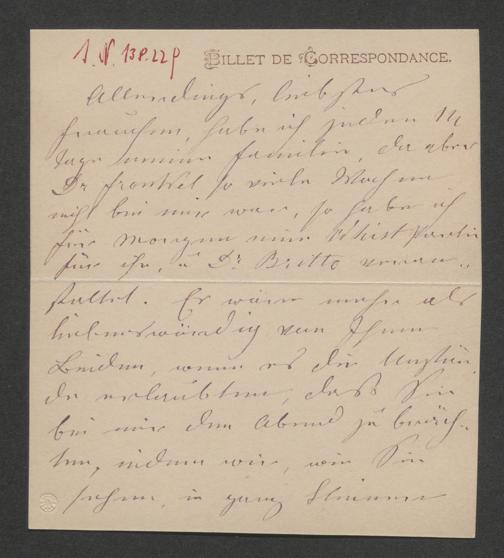 I. N. 138.229
BILLET DE CORRESPONDANCE.
Allerdings, liebstes
Frauchen, habe ich jeden 14
Tage meine Familie, da aber
Dr Frankel so viele Wochen
nicht bei mir war, so habe ich
für Morgen eine Whist Partie
für ihn, u Dr. Britto veran-
staltet. Er wäre mehr als
liebenswürdig von Ihnen
Beiden, wenn es die Umstän
de erlaubten, daß Sie
bei mir den Abend zu bräch-
ten, indem wir, wie Sie
sehen, in ganz kleinem